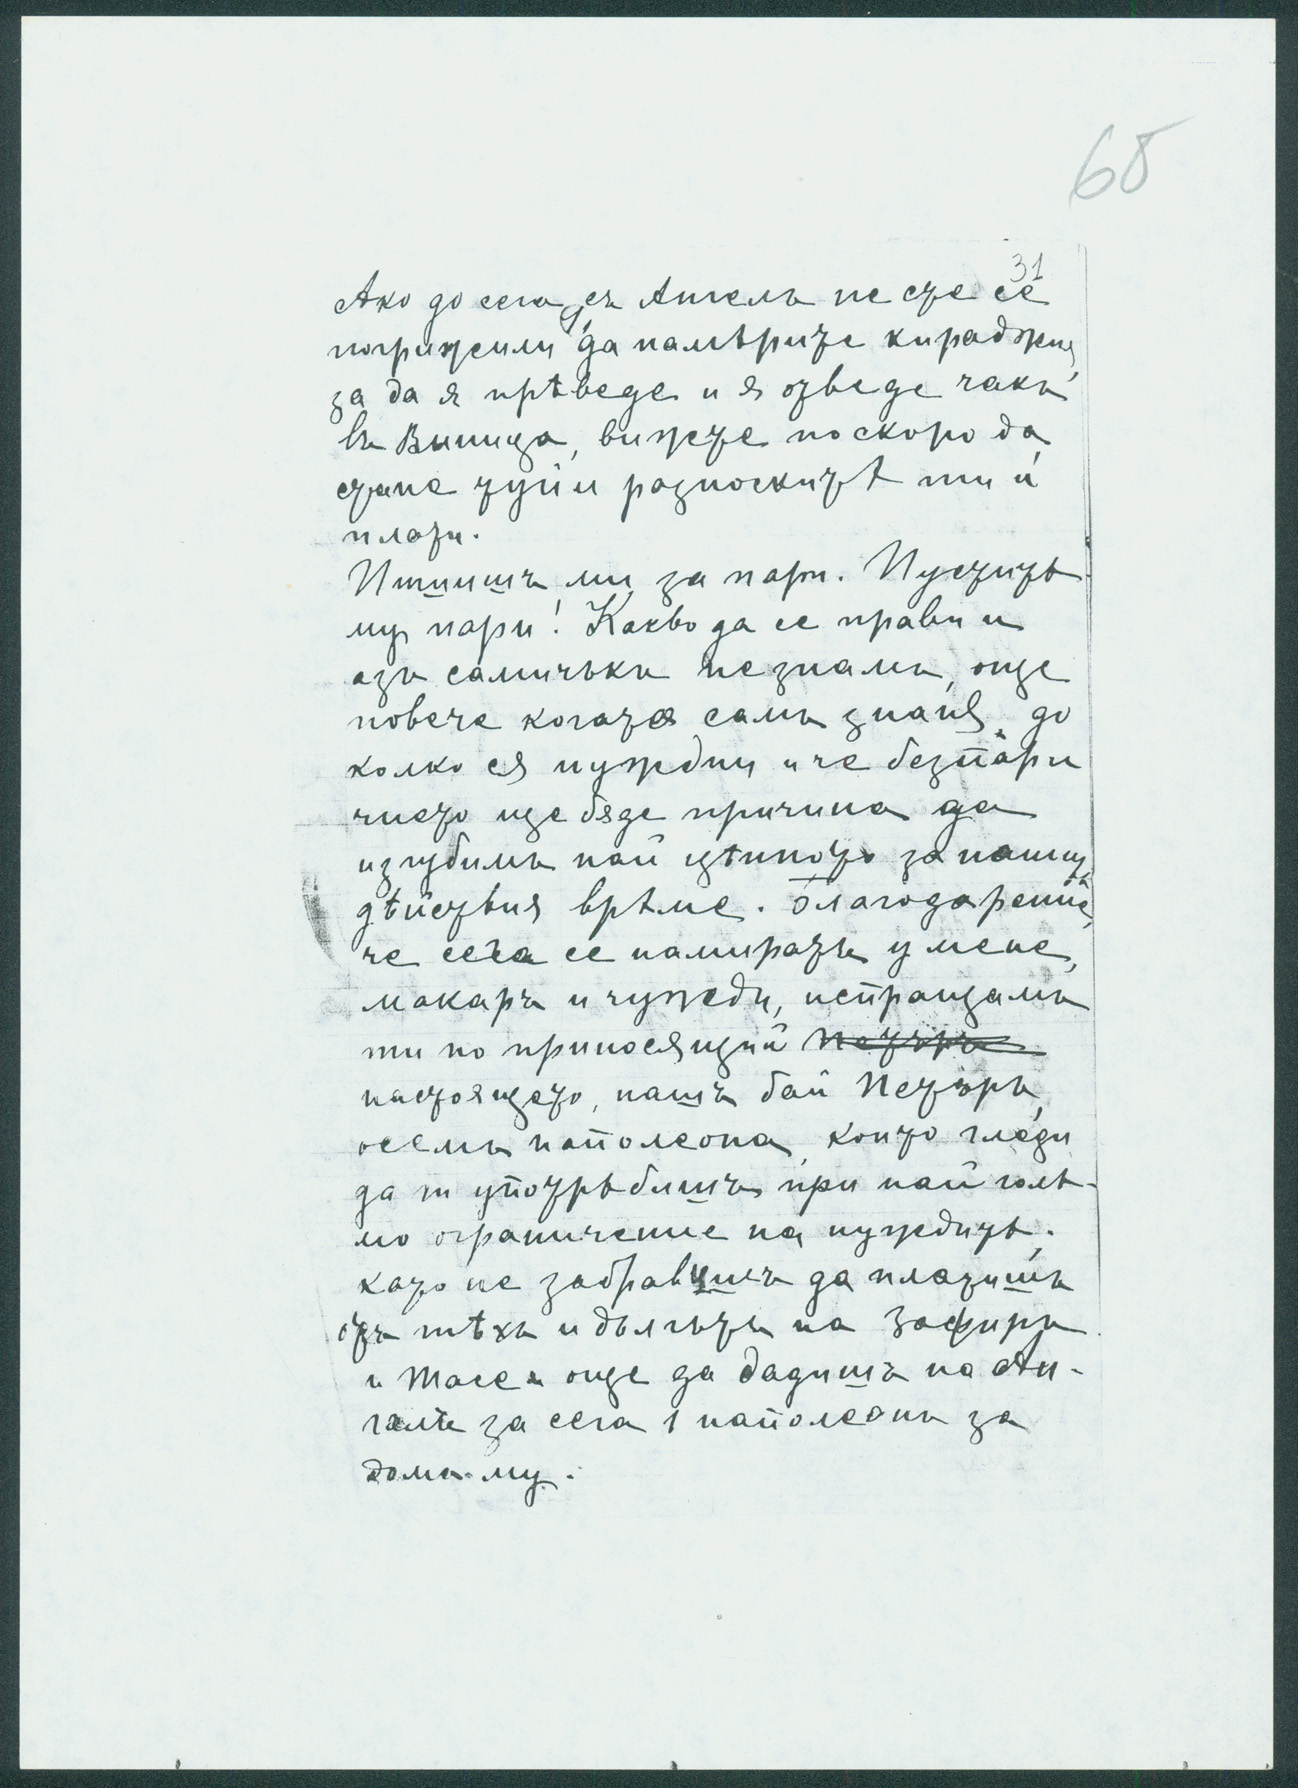 68
31
Ако до сега съ Ангелъ не сте се
погрижили да намѣрите кираджия
за да я прѣведе и я отведе чакъ
въ Виница, вижте поскоро да
стане туй и разноскитѣ ти й
плати.
Пишишъ ми за пари. Пуститѣ
му пари! Какво да се прави и
азъ самичъкъ не знамъ, още
повече когато самъ знайѫ до
колко сѫ нуждни и че без пари
често ще бѫде причина да
изгубимъ най цѣнното за наши
дѣйствия врѣме. Благодарение,
че сега се намиратъ у мене,
макаръ и чужди, испращамъ
ти по приносящий Петъръ
настоящето, нашъ бай Петъръ,
осемъ наполеона, които гледи
да ги употрѣбишъ при най голѣ-
мо ограничение на нуждитѣ.
като не забравишъ да платишъ
отъ тѣхъ и дългътъ на Зафиръ
и Тасе и още да дадишъ на Ан-
гелѣ за сега 1 наполеонъ за
домъ му.